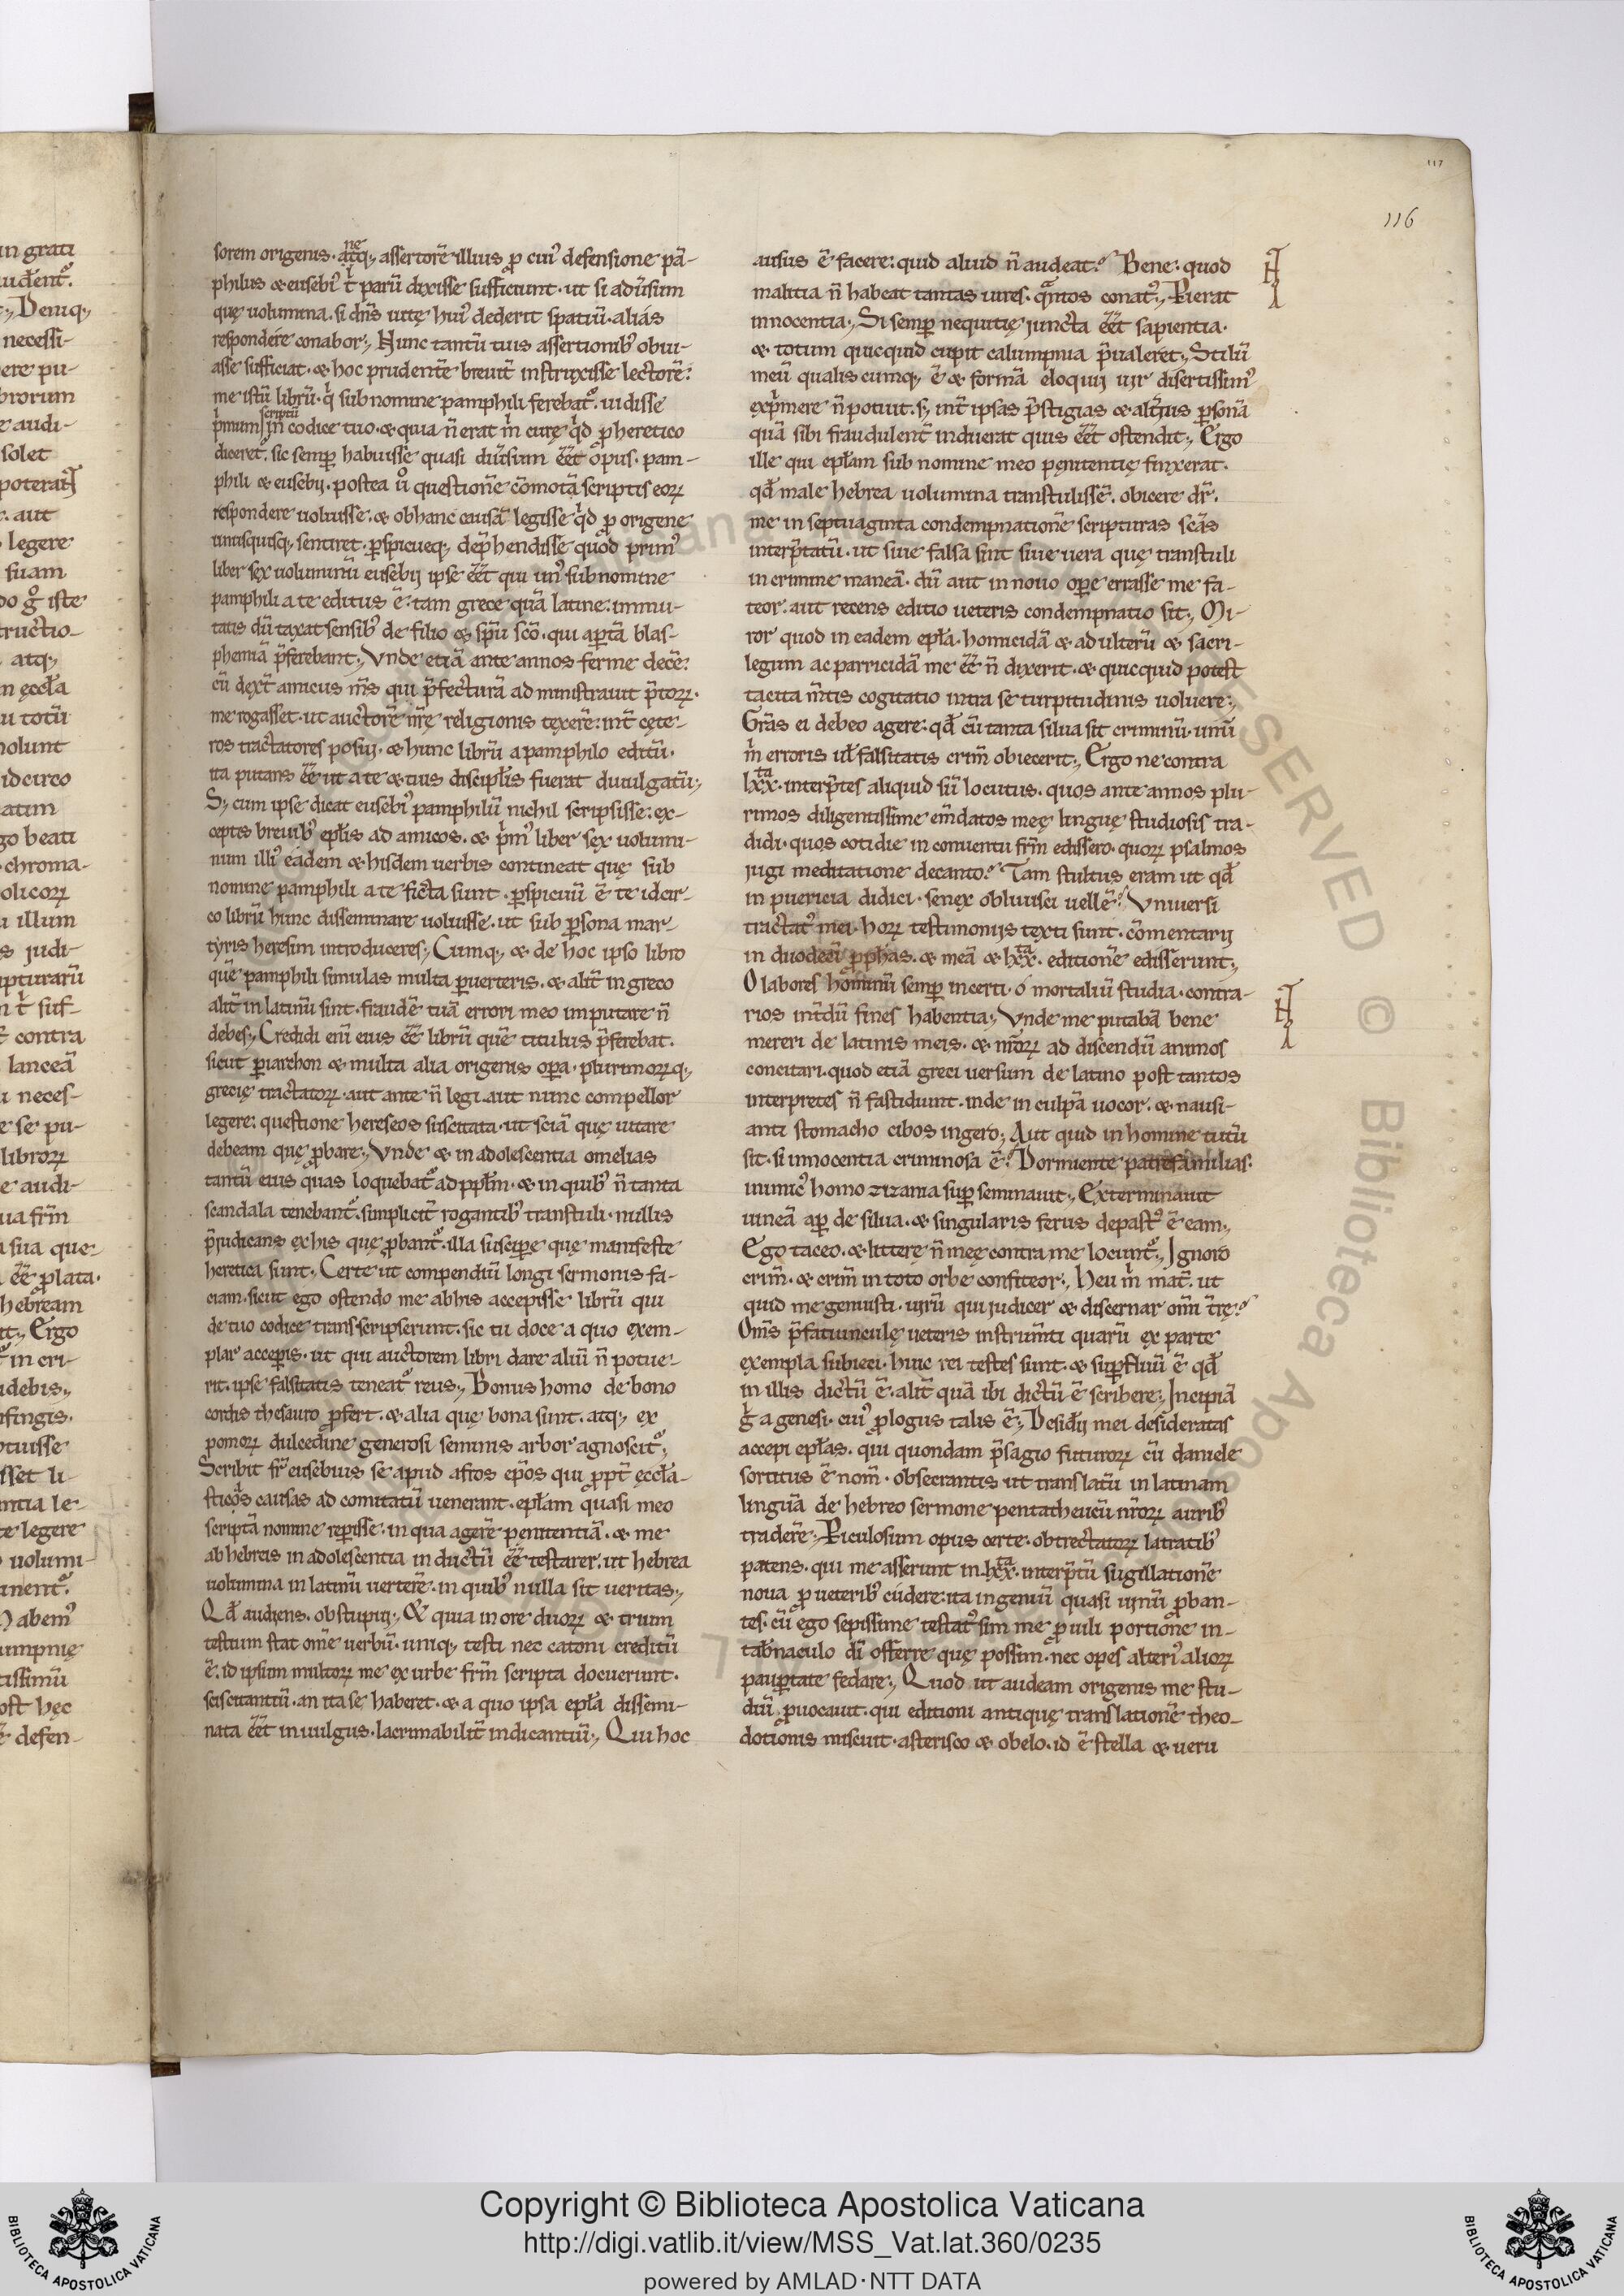 117
116
sorem origenis· atq;, assertorē illius ꝓ cui᾽ defensione pā-
philus & eusebi᾽ t᷑ parū dixisse sufficiunt· ut si aduˀsum
quę uolumina· si dn̄s uitę hui᾽ dederit spatiū· aliás
respondére conabor;, Nunc tantū tuis assertionib᾽ obui-
asse sufficiat· & hoc prudent̄e breuit̄ instruxisse lectorē:
me istū librū· q' sub nomine pamphili ferebat᷑· uidisse
p'mum scriptū in codice tuo· & quia n̄ erat m' curę q'd ꝓ heretico
diceret᷑· sic semꝑ habuisse quasi diūsum eēt opus· pam-
phili & eusebij· postea ů questionē cōmotā scriptis eoꝝ
respondere uoluisse· & ob hanc causā legisse q'd ꝓ origene
unusquisq; sentiret· ꝑspicueq; dep̄hendisse quod prim᾽
liber sex uoluminū eusebij ipse eēt qui un᾽ sub nomine
pamphili a te editus ē· tam grece quā latine: immu-
tatis dū taxat sensib᾽ de filio & sp̄u sc̄o· qui aꝑtā blas-
phemiā p̄ferebant;, Vnde etiā ante annos ferme decē:
cū dext᷑ amicus m̄s qui p̄fecturā ad ministrauit p̄toꝝ·
me rogasset· ut auctorē nr̄ę religionis texerē: int̄ cęte-
ros tractatores posui· & hunc librū a pamphilo editū·
ita putans eē ut a te & tuis discipl̄is fuerat diuulgatū;,
S; cum ipse dicat eusebi᾽ pamphilū nichil scripsisse: ex-
ceptis breuib᾽ ep̄lis ad amicos· & p'm᾽ liber sex uolumi-
num illi᾽ eadem & hisdem uerbis contineat quę sub
nomine pamphili a te ficta sunt· ꝑspicuū ē te idcir-
co librū hunc disseminare uoluisse· ut sub ꝑsona mar-
tyris heresim introduceres;, Cumq; & de hoc ipso libro
quē pamphili simulas multa ꝑuerteris· & alit̄ in greco
alit̄ in latinū sint· fraudē tuā errori meo imputare n̄
debes;, Credidi enī eius eē librū quē titulus p̄ferebat·
sicut ꝑiarchon & multa alia origenis oꝑa· plurimoꝝq;
grecię tractatoꝝ· aut ante n̄ legi· aut nunc compellor
legere: questione hereseos suscitata· ut sciā quę uitare
debeam quę ꝓbare;, Vnde & in adolescentia omelias
tantū eius quas loquebat᷑ ad ppl̄m· & in quib᾽ n̄ tanta
scandala tenebant᷑· simplicit̄ rogantib᾽ transtuli· nullis
p̄iudicans ex his quę ꝓbant᷑· illa susciꝑe quę manifeste
heretica sunt;, Certe ut compendiū longi sermonis fa-
ciam· sicut ego ostendo me ab his accepisse librū qui
de tuo codice transscripserunt· sic tu doce a quo exem-
plar acceꝑis· ut qui auctorem libri dare aliū n̄ potue-
rit· ipse falsitatis teneat᷑ reus;, Bonus homo de bono
cordis thesauro ꝓfert· & alia quę bona sunt· atq; ex
pomoꝝ dulcedine generosi seminis arbor agnoscit᷑;,
Scribit fr̄ eusebius se apud afros ep̄os qui ꝓpt̄ ęccl̄a-
sticos causas ad comitatū uenerant· ep̄lam quasi meo
scriptā nomine reꝑisse· in qua agerē penitentiā· & me
ab hebreis in adolescentia inductū eē testarer· ut hebrea
uolumina in latinū uerterē· in quib᾽ nulla sit ueritas;,
Qđ audiens· obstupui;, & quia in ore duoꝝ & trium
testium stat om̄e uerbū· uniq; testi nec catoni creditū
ē· id ipsum multoꝝ me ex urbe fr̄m scripta docuerunt·
suscitantiū· an ita se haberet· & a quo ipsa ep̄la dissemi-
nata eēt in uulgus· lacrimabilit̄ indicantiū;, Qui hoc
ausus ē facere: quid aliud n̄ audeat? Bene: quod
malitia n̄ habeat tantas uires· q̄ntos conat᾽;, Pierat
innocentia;, Si semꝑ nequitię juncta eēt sapientia·
& totum quicquid cupit calumpnia p̄ualeret;, Stilū
meū qualis cumq; ē & formā eloquij uir disertissim᾽
exp'mere n̄ potuit· s; int̄ ipsas p̄stigias & alt̄ius ꝑsonā
quā sibi fraudulent̄ induerat quis eēt ostendit;, Ergo
ille qui ep̄lam sub nomine meo pęnitentię finxerat·
qđ male hebrea uolumina transtulissē· obicere dr̄·
me in septuaginta condempnationē scripturas scās
interp̄tatū· ut siue falsa sint siue uera quę transtuli
in crimine maneā· dū aut in nouo oꝑe errasse me fa-
teor: aut recens editio ueteris condempnatio sit;, Mi-
ror quod in eadem ep̄la· homicidā & adulterū & sacri-
legum ac parricidā me eē n̄ dixerit· & quicquid potest
tacita m̄tis cogitatio intra se turpitudinis uoluere;,
Gr̄as ei debeo agere: qđ cū tanta silua sit criminū· unū
m' erroris ul̄ falsitatis crim̄ obiecerit;, Ergo ne contra
lxx^ta· interp̄tes aliquid sū locutus· quos ante annos plu-
rimos diligentissime em̄datos meę linguę studiosis tra-
didi· quos cotidie in conuentu fr̄m edissero· quoꝝ psalmos
jugi meditatione decanto? Tam stultus eram ut qđ
in puericia didici· senex obliuisci uellē? Vniuersi
tractat᾽ mei· hoꝝ testimonijs texti sunt· cōmentarij
in duodecī ꝓph̄as· & meā & lxx^ta· editionē edisserunt;,
O labores hominū semꝑ incerti· o mortaliū studia· contra-
rios int̄dū fines habentia;, Vnde me putabā bene
mereri de latinis meis· & nr̄oꝝ ad discendū animos
concitari· quod etiā greci uersum de latino post tantos
interpretes n̄ fastidiunt· inde in culpā uocor· & nausi-
anti stomacho cibos ingero;, Aut quid in homine tutū
sit· si innocentia criminosa ē? Dormiente patrefamilias·
inimic᾽ homo zizania suꝑ seminauit;, Exterminauit
uineā aꝑ de silua· & singularis ferus depast᾽ ē eam;,
Ego taceo· & litterę n̄ meę contra me locunt᷑;, Ignoro
crim̄· & crim̄ in toto orbe confiteor;, Heu m' mat̄· ut
quid me genuisti· uirū qui judicer & discernar om̄i t̄rę?
Om̄s p̄fatiunculę ueteris instrum̄ti quarū ex parte
exempla subieci· huic rei testes sunt· & suꝑfluū ē qđ
in illis dictū ē· alit̄ quā ibi dictū ē scribere;, Incipiā
g̊ a genesi· cui᾽ ꝓlogus talis ē;, Desiđij mei desideratas
accepi ep̄las· qui quondam p̄sagio futuroꝝ cū daniele
sortitus ē nom̄· obsecrantis ut translatū in latinam
linguā de hebreo sermone pentatheucū nr̄oꝝ aurib᾽
traderē;, Piculosum opus certe· obtrectatoꝝ latratib᾽
patens· qui me asserunt in lxx^ta· interp̄tū sugillationē
noua ꝓ ueterib᾽ cúdere: ita ingeniū quasi uinū ꝓban-
tes· cū ego sepissime testat᾽ sim me ꝓ uili portione in-
tab̄naculo dī offerre quę possim· nec opes alteri᾽ alioꝝ
pauꝑtate fedare;, Quod ut audeam origenis me stu-
diū ꝓuocauit· qui editioni antiquę translationē theo-
dotionis miscuit· asterisco & obelo· id ē stella & ueru
Copyright © Biblioteca Apostolica Vaticana
http://digi.vatlib.it/view/MSS_Vat.lat.360/0235
powered by AMLAD·NTT DATA
BIBLIOTECA APOSTOLICA VATICANA
BIBLIOTECA APOSTOLICA VATICANA